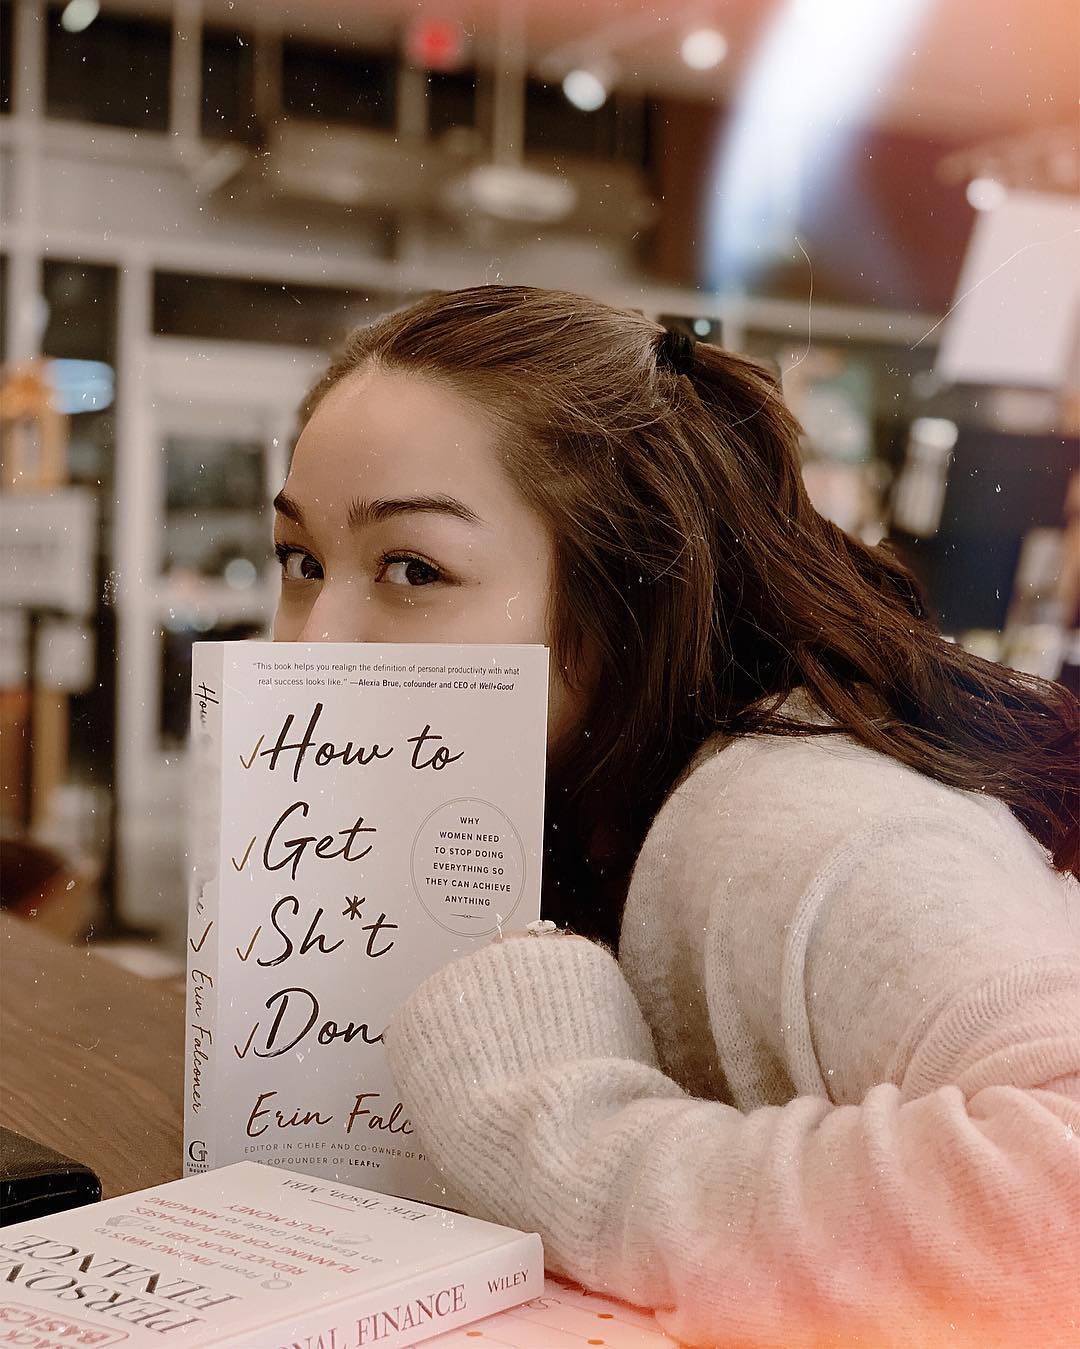 "This book helps you realign the definition of personal productivity with what
real success looks like." —Alexia Brue, cofounder and CEO of Well+Good
How to
Get
Sh*t
Don
WHY
WOMEN NEED
TO STOP DOING
EVERYTHING SO
THEY CAN ACHIEVE
ANYTHING
Erin Falc
EDITOR IN CHIEF AND CO-OWNER OF
COFOUNDER OF LEAFtv
How
Erin Falconer
GALLERY
BOOKS
Eric Tyson, MBA
an Essential Guide to MANAGING
YOUR MONEY
From FINDING WAYS to
REDUCE YOUR DEBT to
PLANNING FOR BIG PURCHASES
PERSONA
FINANCE
BACK
BASICS
NAL FINANCE WILEY